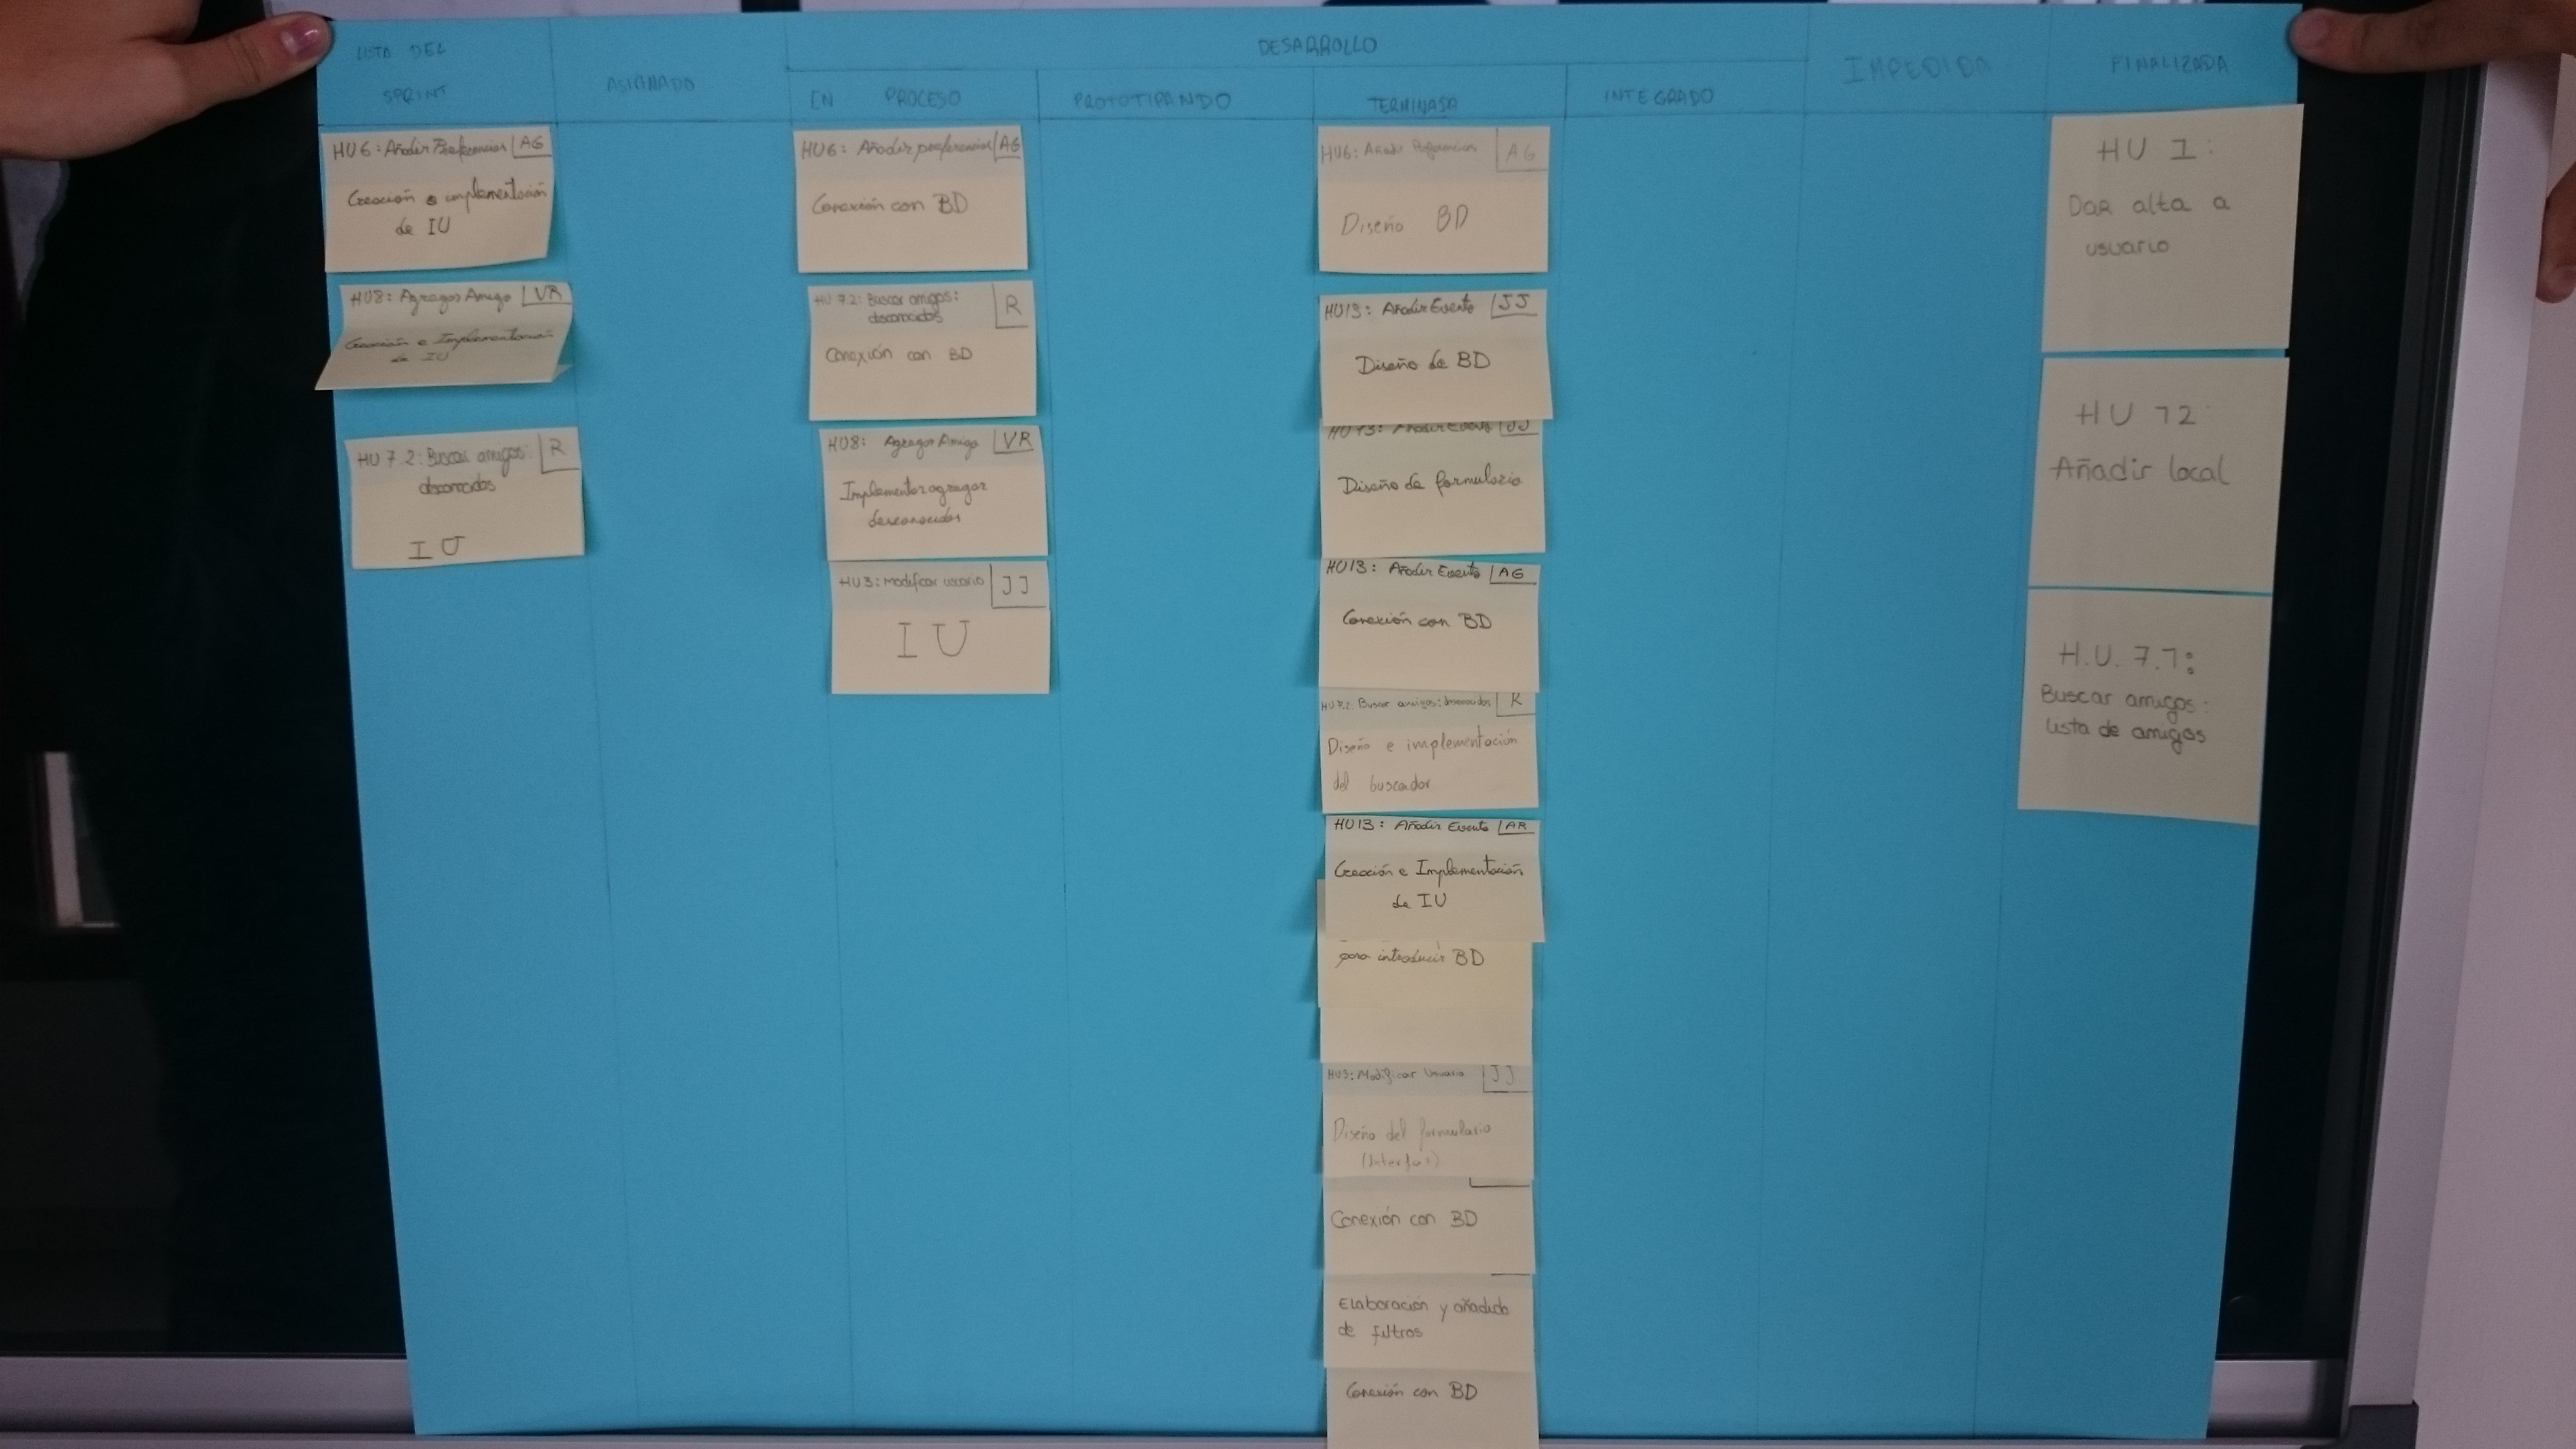 LISTA DEL
SPRINT
ASIGNADO
DESARROLLO
EN PROCESO
PROTOTIPANDO
TERMINASA
INTEGRADO
IMPEDIDA
FINALIZADA
HU6: Añadir Preferencias AG
Creación e implementación
de IU
HU8: Agregar Amigo VR
Creación e Implementación
de IU
HU 7.2: Buscar amigos: R
desconocidos
IU
HU6: Añadir preferencias AG
Conexión con BD
HU 7.2: Buscar amigos: R
desconocidos
Conexión con BD
HU8: Agregar Amigo VR
Implementar agregar
desconocidos
HU3: Modificar usuario JJ
IU
HU6: Añadir Preferencias AG
Diseño BD
HU13: Añadir Evento JJ
Diseño de BD
HU13: Añadir Evento JJ
Diseño de formulario
HU13: Añadir Evento AG
Conexión con BD
HU 7.2: Buscar amigos: desconocidos R
Diseño e implementación
del buscador
HU13: Añadir Evento AR
Creación e Implementación
de IU
para introducir BD
HU3: Modificar Usuario JJ
Diseño del formulario
(Interfaz)
Conexión con BD
Elaboración y añadido
de filtros
Conexión con BD
HU 1:
Dar alta a
usuario
HU 12:
Añadir local
H.U. 7.1:
Buscar amigos:
lista de amigos